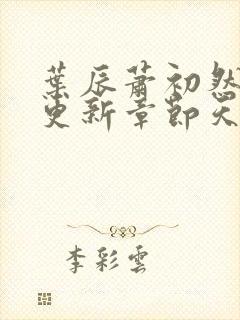 葉辰蕭初然
更新章節天
李彩雲